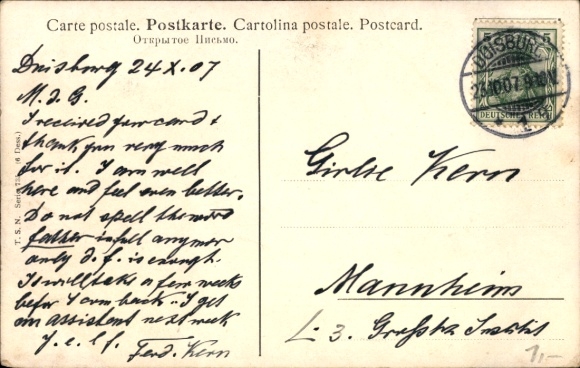 Carte postale. Postkarte. Cartolina postale. Postcard.
Открытое Письмо.
Duisburg 24 X. 07
M. d. G.
I received your card &
thank you very much
for it. I am well
here and feel even better.
Do not spell the word
father in full anymor
only d. f. is enough.
It will take a few weeks
befor I com back. I get
an assistent next week
Y. e. l. f.
Ferd. Kern
T. S. N. Serie
(6 Dess.)
5 5
DEUTSCHES REICH
DUISBURG
23.10.07
* 1
Kern
Mannheim
L. 3. Institut
1,-